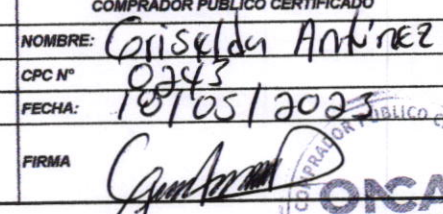 COMPRADOR PÚBLICO CERTIFICADO
NOMBRE: Griselda Antúnez
CPC N° 0243
FECHA: 18/05/2023
FIRMA
COMPRADOR PÚBLICO C
ONCA